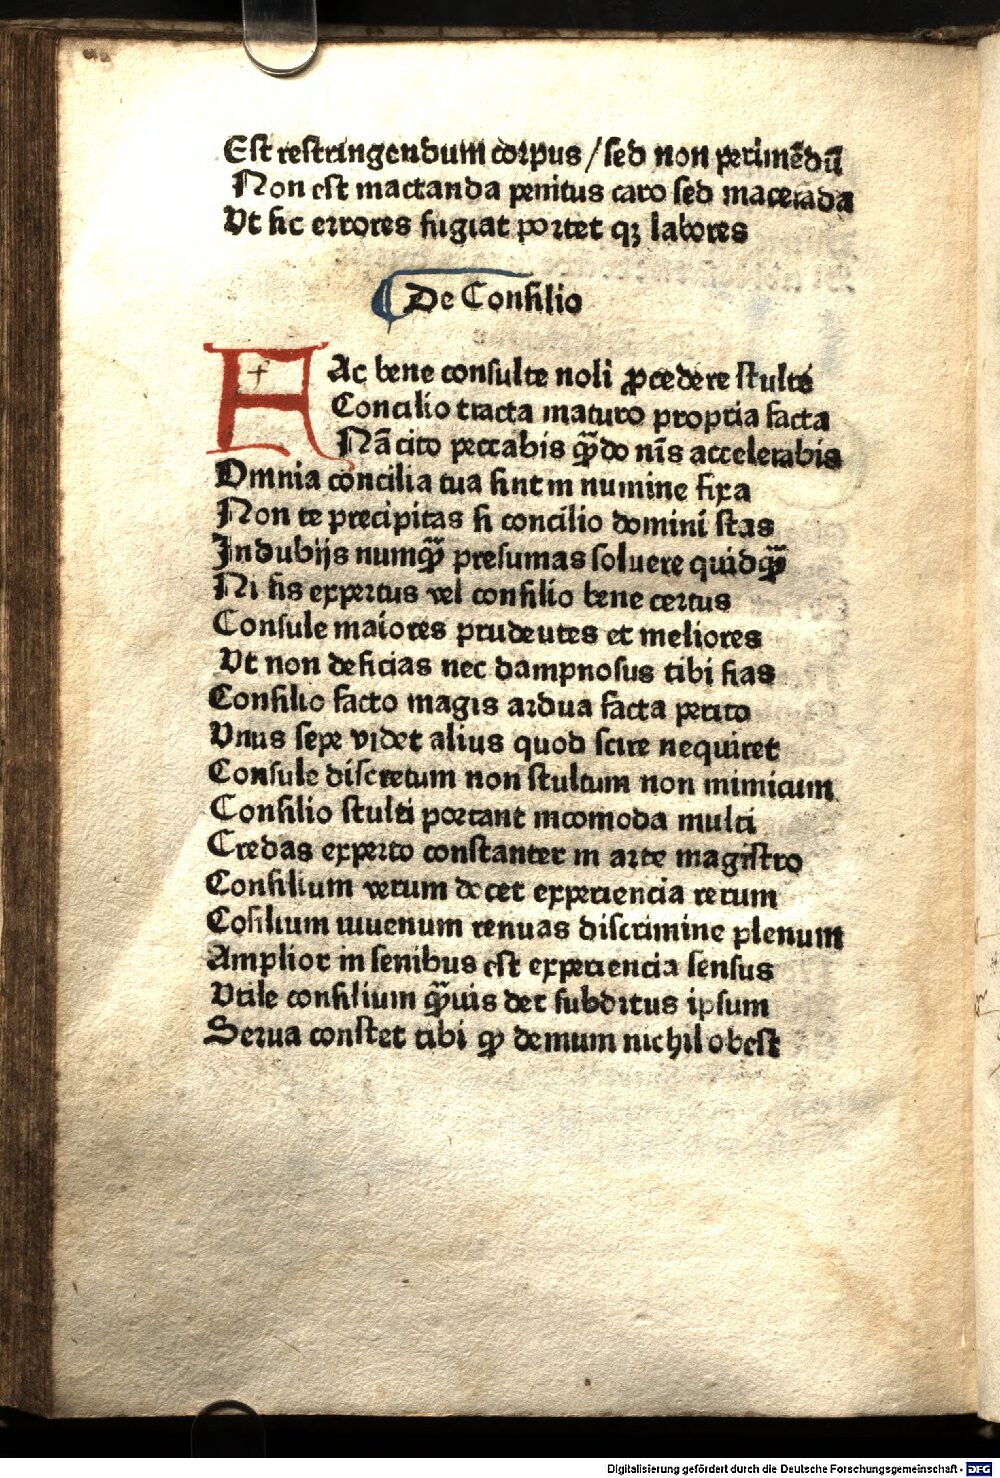 Est restringendum corpus / sed non perimēdū
Non est mactanda penitus caro sed macerāda
Vt sic errores fugiat portet qꝫ labores
De Consilio
Fac bene consulte noli ꝓcedere stulte
Concilio tracta maturo propria facta
Nā cito peccabis qn̄do nīs accelerabis
Omnia concilia tua sint in numine fixa
Non te precipitas si concilio domini stas
In dubijs numqᷓ presumas soluere quidqᷓ
Ni sis expertus vel consilio bene certus
Consule maiores prudeutes et meliores
Vt non deficias nec dampnosus tibi fias
Consilio facto magis ardua facta petito
Vnus sepe videt alius quod scire nequiret
Consule discretum non stultum non mimicum
Consilio stulti portant incomoda multi
Credas experto constanter in arte magistro
Consilium verum docet experiencia rerum
Cosilium iuuenum renuas discrimine plenum
Amplior in senibus est experiencia sensus
Vtile consilium qᷓuis det subditus ipsum
Serua constet tibi ꝙ demum nichil obest
Digitalisierung gefördert durch die Deutsche Forschungsgemeinschaft - DFG